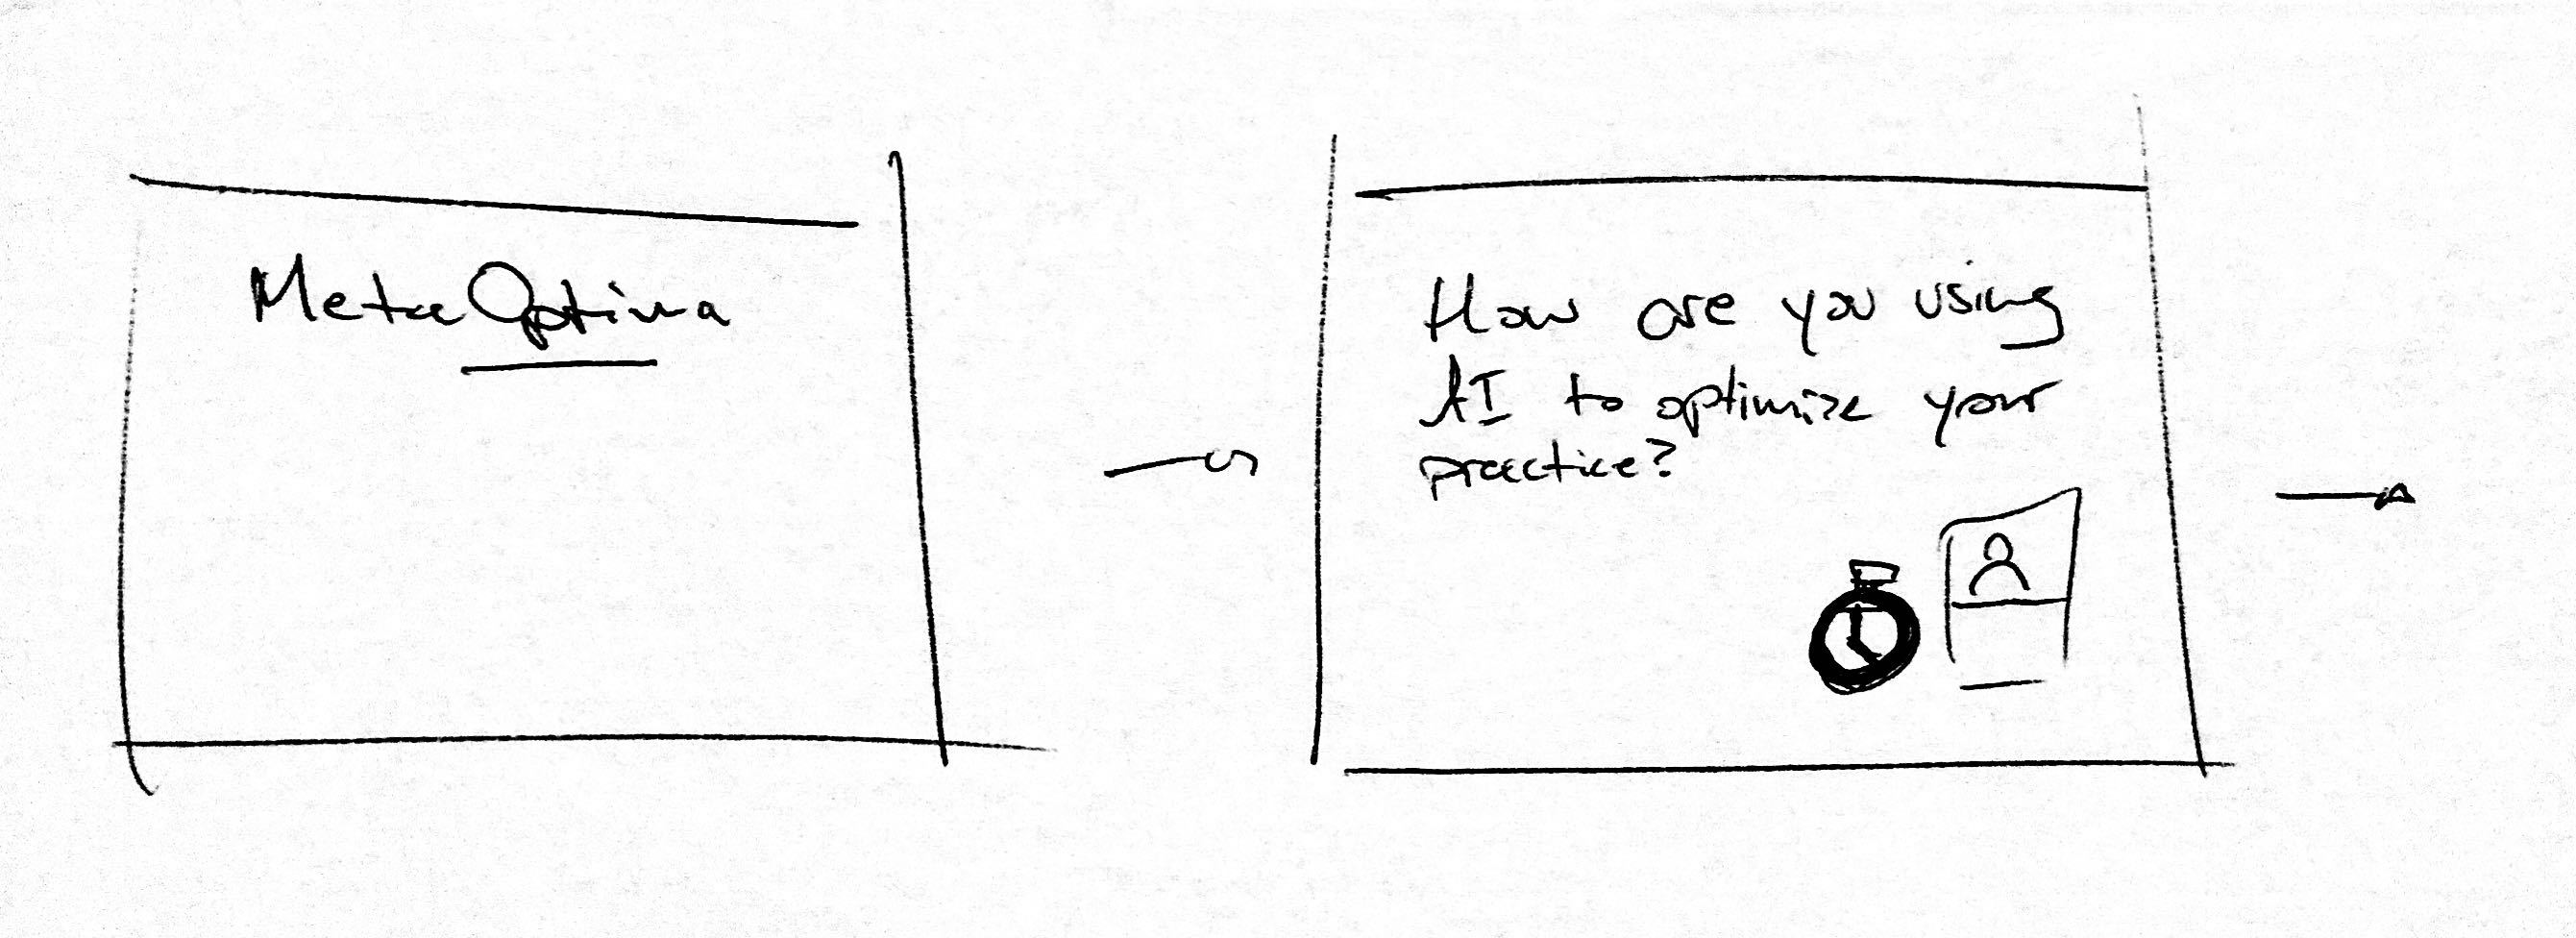 MetaOptima
How are you using
AI to optimize your
practice?